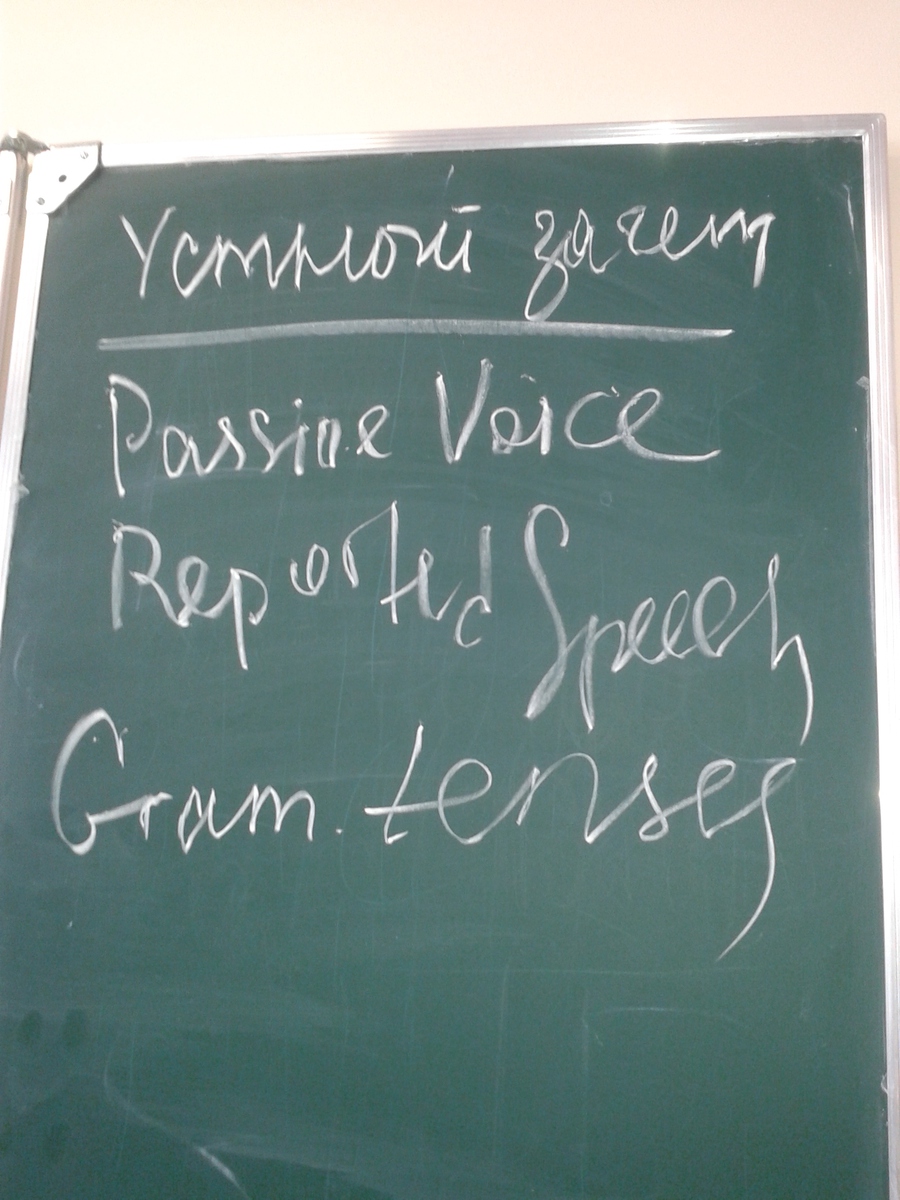 Устный зачет
Passive Voice
Reported Speech
Gram. tenses